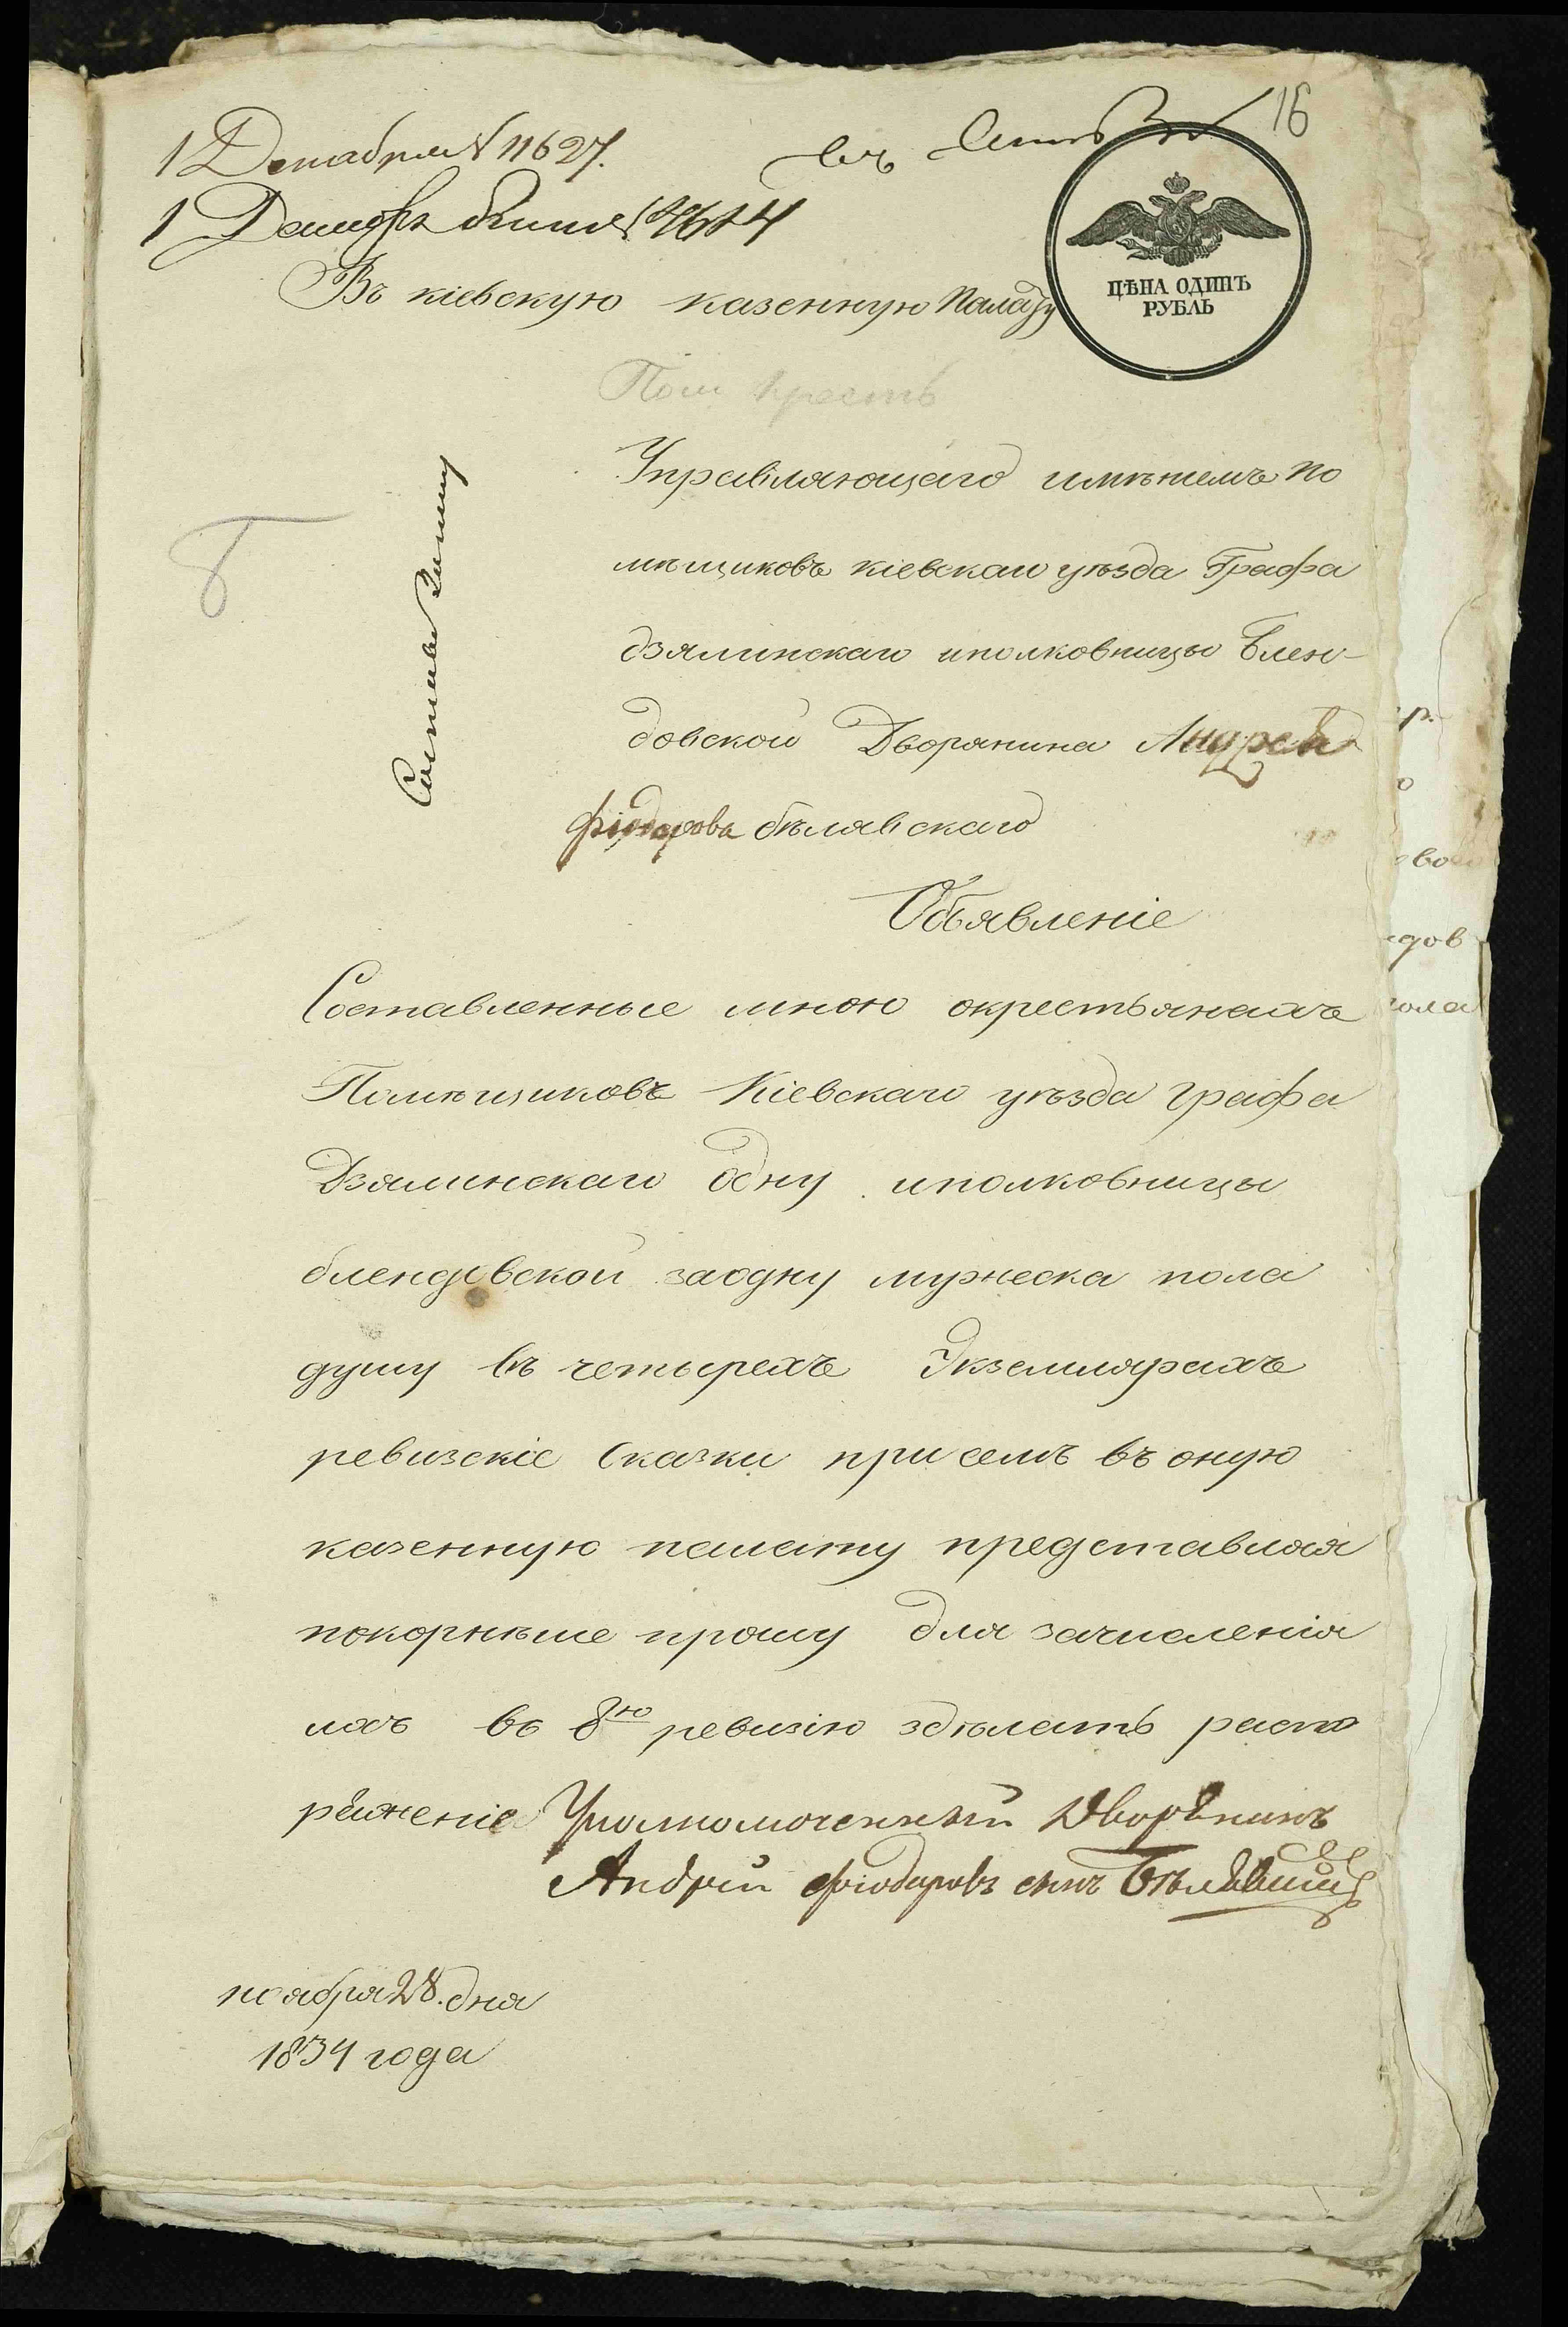 16
1 Декабря № 11627.
въ
1
ЦѢНА ОДИНЪ
РУБЛЬ
Въ кіевскую казенную Палату
Пом Крестъ
Управляющаго имѣніемъ по
мѣщиковъ кіевскаго уѣзда Графа
дзялинскаго иполковницы блен-
довской Дворянина Андрея
фіодорова бѣлявскаго
Объявленіе
Составленные мною окрестьянахъ
Помѣщиковъ Кіевскаго уѣзда графа
Дзялинскаго одну иполковницы
блендовской заодну мужеска пола
душу въ четырехъ Экземплярахъ
ревизскіе Сказки при семъ въ оную
казенную палату представляя
покорнѣше прошу для зачисленія
ихъ въ 8ю ревизію здѣлать распо
ряженіе Уполномоченный Дворянинъ
Андрей фіодоровъ сынъ Бѣлявскій
ноября 28. дня
1834 года